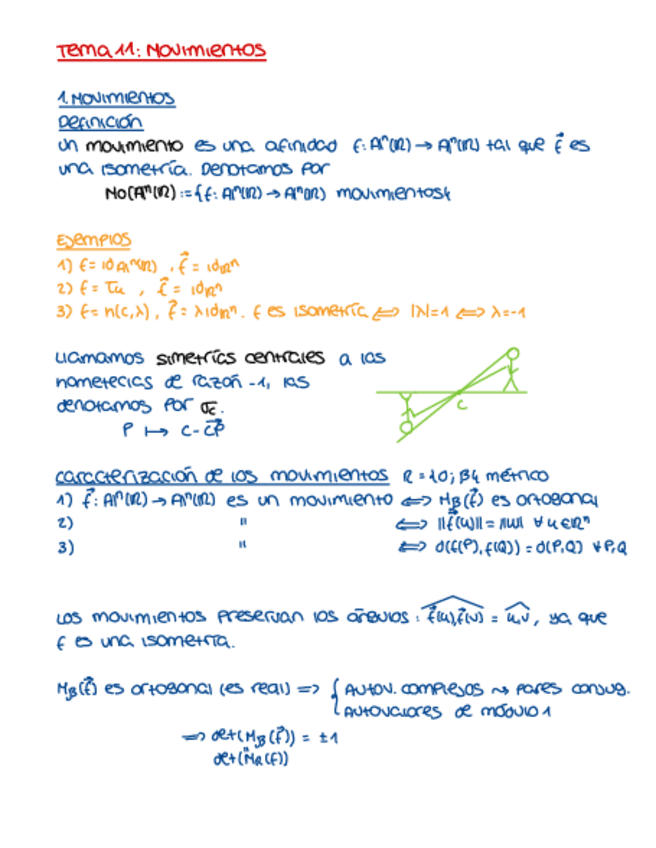 Tema 11: Movimientos
1. Movimientos
Definición
Un movimiento es una afinidad f: Aⁿ(ℝ) → Aⁿ(ℝ) tal que f⃗ es
una isometría. Denotamos por
Mo(Aⁿ(ℝ)) := {f: Aⁿ(ℝ) → Aⁿ(ℝ) movimientos}
Ejemplos
1) f = id Aⁿ(ℝ) , f⃗ = idℝⁿ
2) f = τu , f⃗ = idℝⁿ
3) f = h(c,λ) , f⃗ = λidℝⁿ. f es isometría ⟺ |λ|=1 ⟺ λ=-1
Llamamos simetrías centrales a las
homotecias de razón -1, las
denotamos por σc.
P ↦ C-CP⃗
C
Caracterización de los movimientos R = {O; B} métrico
1) f⃗: Aⁿ(ℝ) → Aⁿ(ℝ) es un movimiento ⟺ M_B(f⃗) es ortogonal
2) " ⟺ ||f⃗(u)|| = ||u|| ∀ u ∈ ℝⁿ
3) " ⟺ d(f(P), f(Q)) = d(P,Q) ∀ P,Q
Los movimientos preservan los ángulos : f⃗(u),f⃗(v) = u,v, ya que
f es una isometría.
M_B(f⃗) es ortogonal (es real) ⟹ { Autov. complejos ⇝ pares conjug.
Autovalores de módulo 1
⟹ det(M_B(f⃗)) = ±1
"
det(M_R(f))